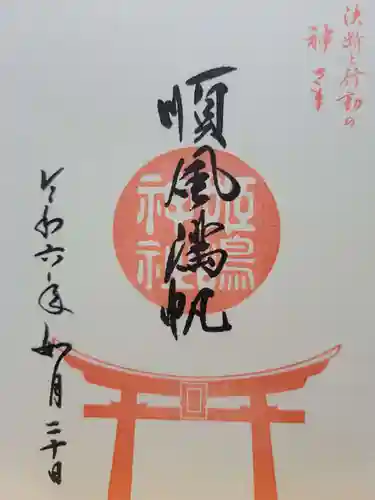 決断と行動の
神さま
順風満帆
姫嶋
神社
令和六年如月二十日